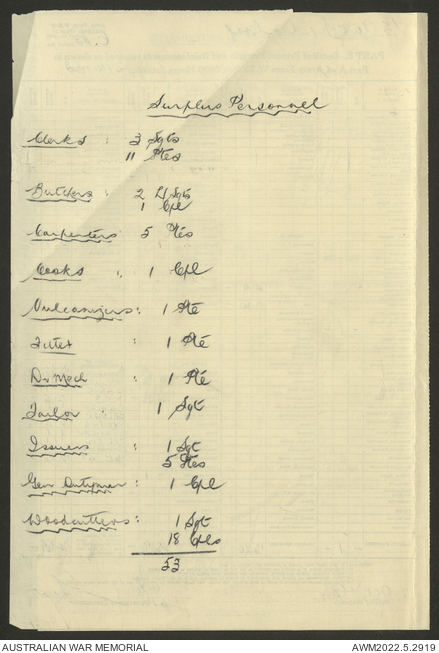 Surplus Personnel
Clerks : 3 Sgts
11 Ptes
Butchers : 2 L/Sgts
1 Cpl
Carpenters 5 Ptes
Cooks : 1 Cpl
Vulcanizers : 1 Pte
Fitter : 1 Pte
Dvr Mech : 1 Pte
Tailor : 1 Sgt
Issuers : 1 Sgt
5 Ptes
Gen Dutyman : 1 Cpl
Woodcutters : 1 Sgt
18 Cpls
53
AUSTRALIAN WAR MEMORIAL
AWM2022.5.2919